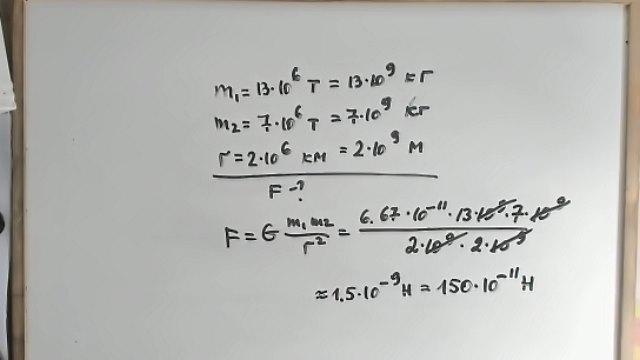 m₁ = 13·10⁶ т = 13·10⁹ кг
m₂ = 7·10⁶ т = 7·10⁹ кг
r = 2·10⁶ км = 2·10⁹ м
F - ?
F = G m₁ m₂ / r² = 6.67·10⁻¹¹·13·10⁹·7·10⁹ / 2·10⁹·2·10⁹
≈ 1.5·10⁻⁹ Н = 150·10⁻¹¹ Н